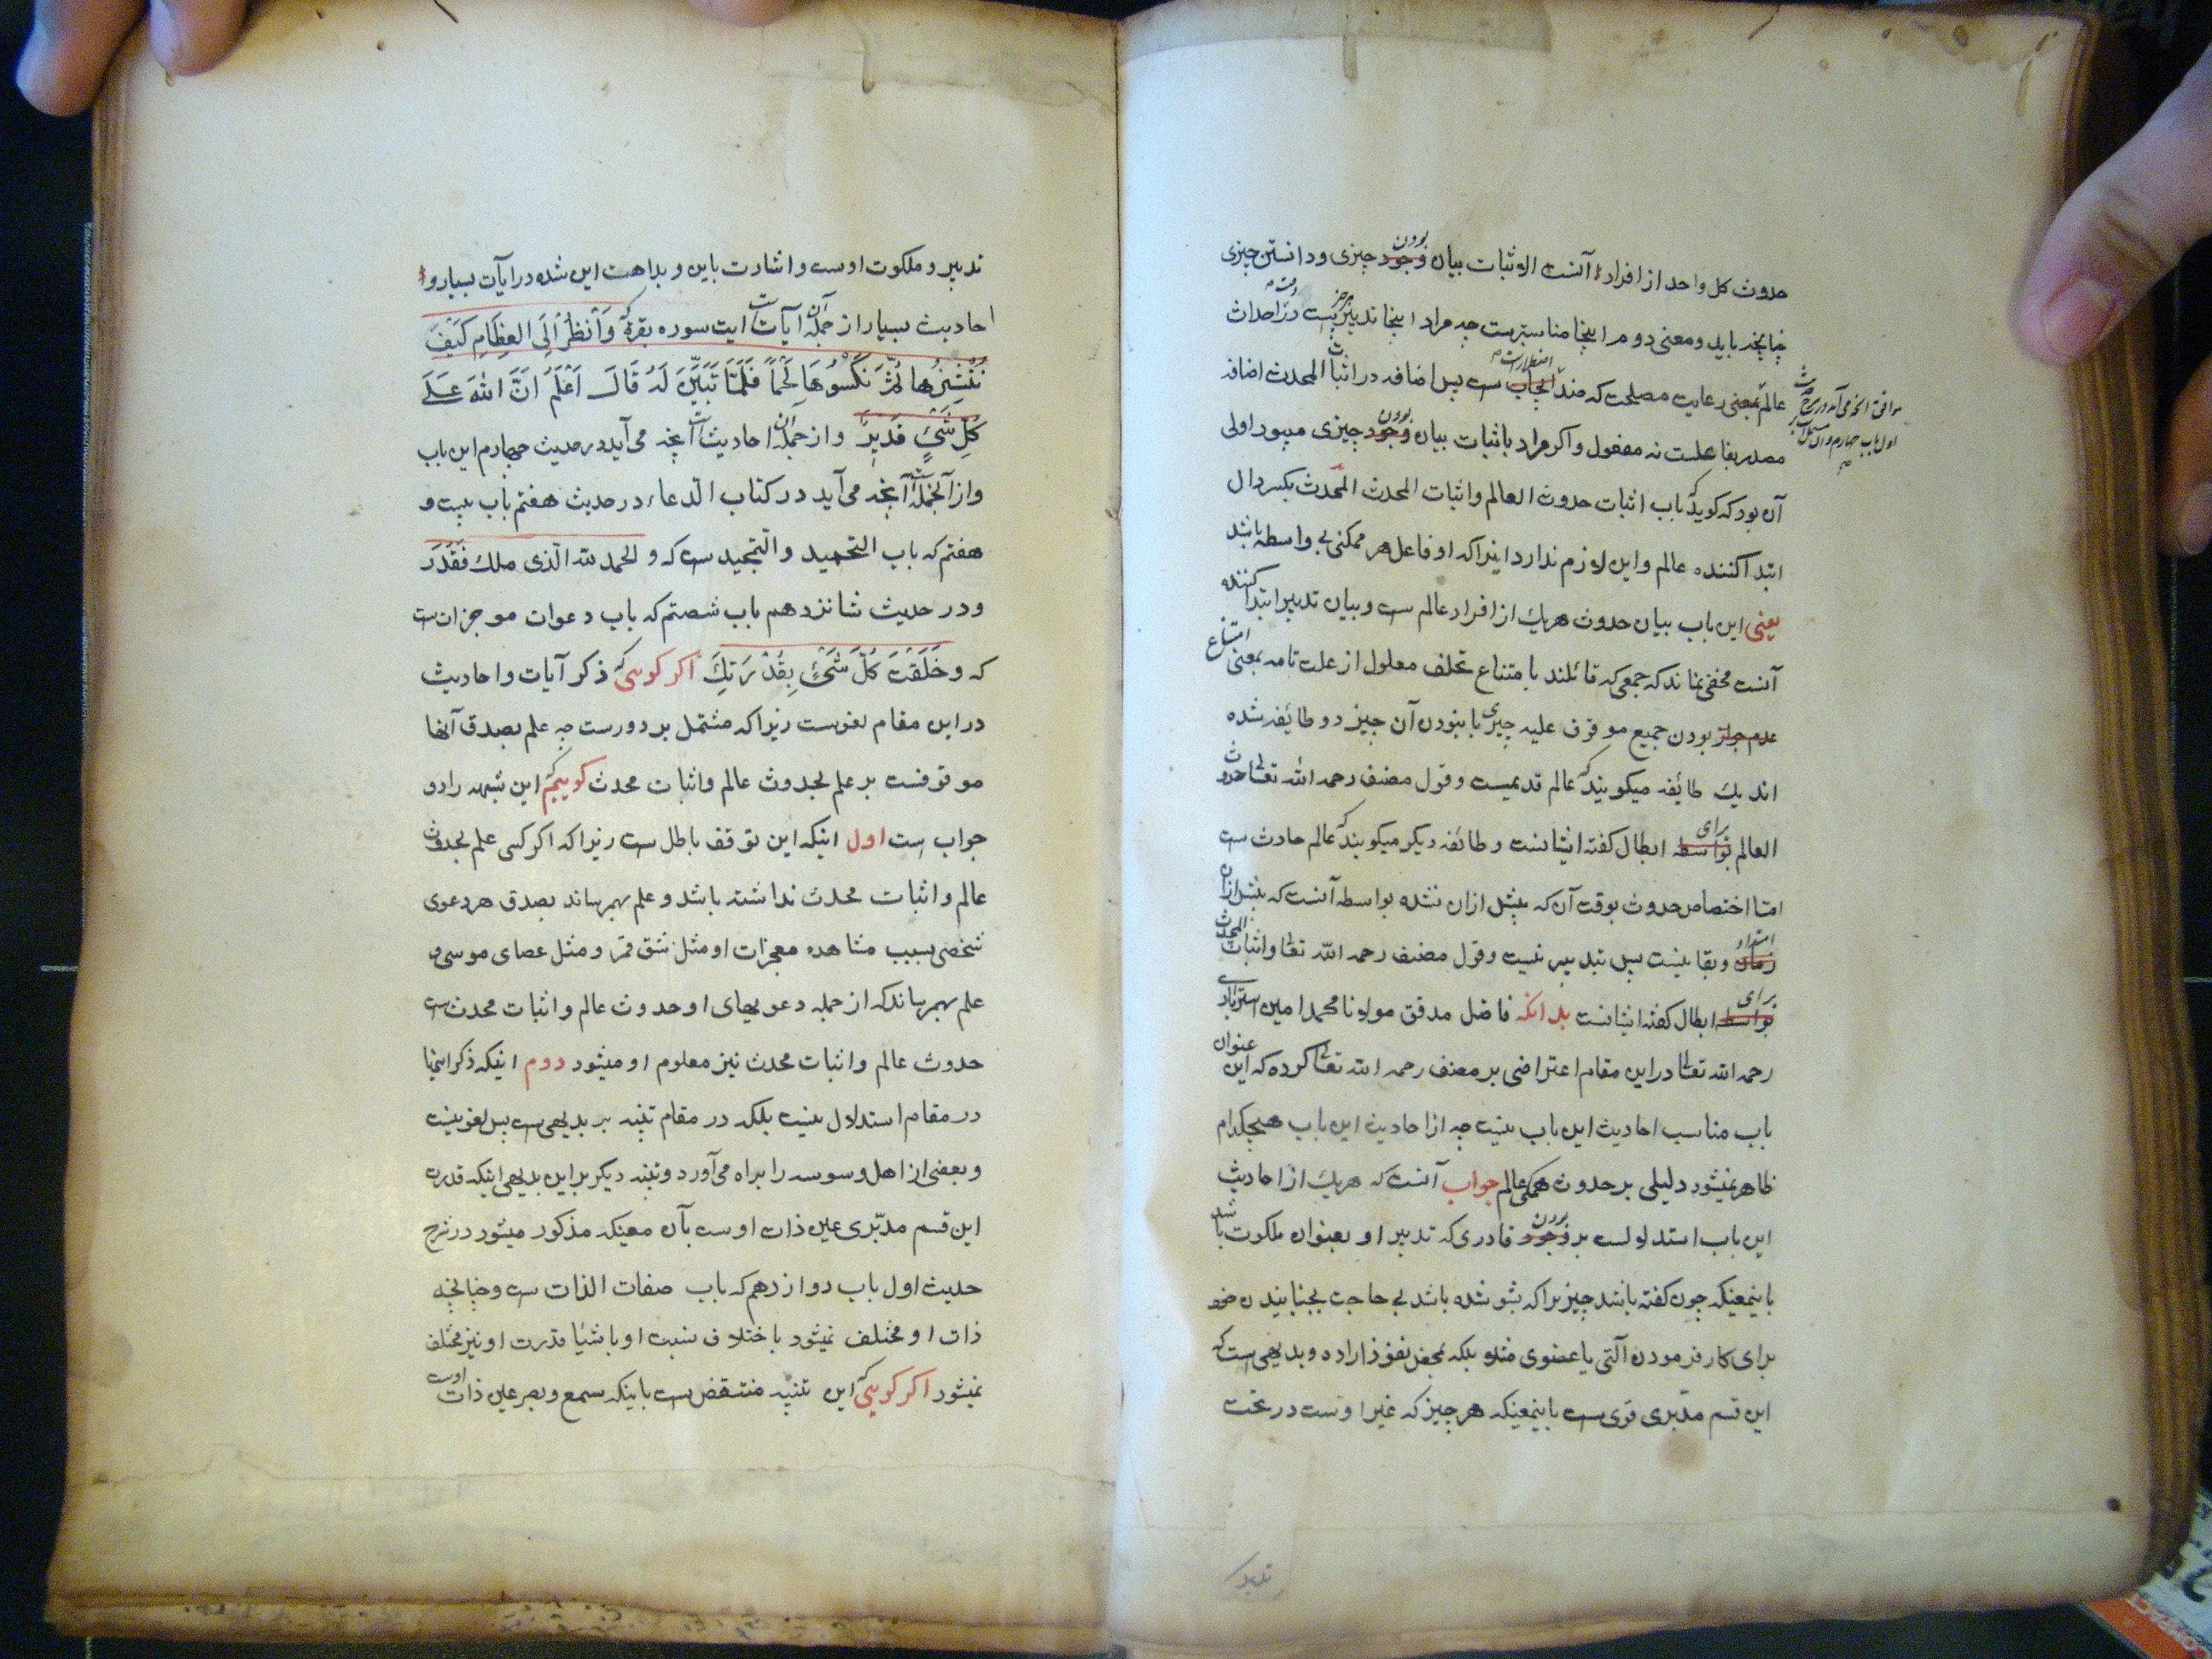 حدوث کل واحد از افراد آنست الاثبات بیان وجود بودن چیزی و دانستن چیزی
چنانچه باید و معنی دوم اینجا مناسبترست چه مراد اینجا تدبیر در احداث
عالم بمعنی رعایت مصلحت که ضد ایجاب ست پس اضافه در اثبات المحدث اضافه
موافق آنچه می آید در شرح
اول باب چهارم
مصدر بفاعلست نه مفعول و اکر مراد باثبات بیان وجود بودن چیزی میبود اولی
آن بود که کوید که باب اثبات حدوث العالم و اثبات المحدث المحدث بکسر دال
ابتدا کننده عالم و این لازم ندارد اینرا که او فاعل هر ممکنی بی واسطه باشد
یعنی این باب بیان حدوث هریك از افراد عالم ست و بیان تدبیر ابتدا کننده
آنست مخفی نماند که جمعی که قائلند بامتناع تخلف معلول از علت تامه بمعنی امتناع
عدم جواز بودن جمیع موقوف علیه چیزی با نبودن آن چیز دو طائفه شده
اند یك طائفه میکویند که عالم قدیمیست و قول مصنف رحمه الله تعالی حدوث
العالم بواسطه برای ابطال کفته ایشانست و طائفه دیکر میکویند که عالم حادث ست
امّا اختصاص حدوث بوقت آن که پیش ازان نشده بواسطه آنست که پیش ازان
زمان امتداد و بقا نیست پس تدبیر نیست و قول مصنف رحمه الله تعالی و اثبات المحدث
بواسطه برای ابطال کفته ایشانست بدانکه فاضل مدقق مولانا محمد امین استرابادی
رحمه الله تعالی در این مقام اعتراضی بر مصنف رحمه الله تعالی کرده که این عنوان
باب مناسب احادیث این باب نیست چه از احادیث این باب هیچکدام
ظاهر نمیشود دلیلی بر حدوث همکی عالم جواب آنست که هریك از احادیث
این باب استدلالست بر وجود بودن قادری که تدبیر او بعنوان ملکوت باشد
باینمعنیکه چون کفته باشد چیزیرا که بشو شده باشد بی حاجت بجنبانیدن خود
برای کار فرمودن آلتی یا عضوی مثلا بلکه بمحض نفوذ اراده و بدیهی ست که
این قسم مدبری قوی ست باینمعنیکه هر چیز که غیر اوست در تحت
تدبیر
تدبیر و ملکوت اوست و اشارت باین و بداهت این شده در آیات بسیار و
احادیث بسیار از جمله آن آیات ست ایت سوره بقره که وَانْظُرْ اِلَی العِظَامِ کَیْفَ
نُنْشِزُها ثُمَّ نَکْسُوهَا لَحْماً فَلَمَّا تَبَیَّنَ لَهُ قَالَ اَعْلَمُ اَنَّ اللهَ عَلَی
کُلِّ شَیْءٍ قَدِیرٌ و از جمله آن احادیث ست آنچه می آید در حدیث چهارم این باب
و ازآنجمله ست آنچه می آید در کتاب الدّعاء در حدیث هفتم باب بیست و
هفتم که باب التحمید و التجید ست که و الحمد لله الّذی ملك فَقَدَرَ
و در حدیث شانزدهم باب شصتم که باب دعوات موجزات ست
که و خَلَقْتَ کُلَّ شَیْءٍ بِقُدْرَتِكَ اکر کویی که ذکر آیات و احادیث
در این مقام لغوست زیرا که مشتمل بر دورست چه علم بصدق آنها
موقوفست بر علم بحدوث عالم و اثبات محدث کوییم که این شبهه را دو
جواب ست اول اینکه این توقف باطل ست زیرا که اکر کسی علم بحدوث
عالم و اثبات محدث نداشته باشد و علم بهم رساند بصدق هر دعوی
شخصی بسبب مشاهده معجزات او مثل شق قمر و مثل عصای موسی و
علم بهم رساند که از جمله دعویهای او حدوث عالم و اثبات محدث ست
حدوث عالم و اثبات محدث نیز معلوم او میشود دوم اینکه ذکر اینها
در مقام استدلال نیست بلکه در مقام تنبیه بر بدیهی ست پس لغو نیست
و بعضی از اهل وسوسه را براه می آورد و تنبیه دیکر بر این بدیهی اینکه قدرت
این قسم مدبّری عین ذات اوست بآن معنیکه مذکور میشود در شرح
حدیث اول باب دوازدهم که باب صفات الذات ست و چنانچه
ذات او مختلف نمیشود باختلاف نسبت او باشیا قدرت او نیز مختلف
نمیشود اکر کویی که این تنبیه منتقض ست باینکه سمع و بصر عین ذات اوست